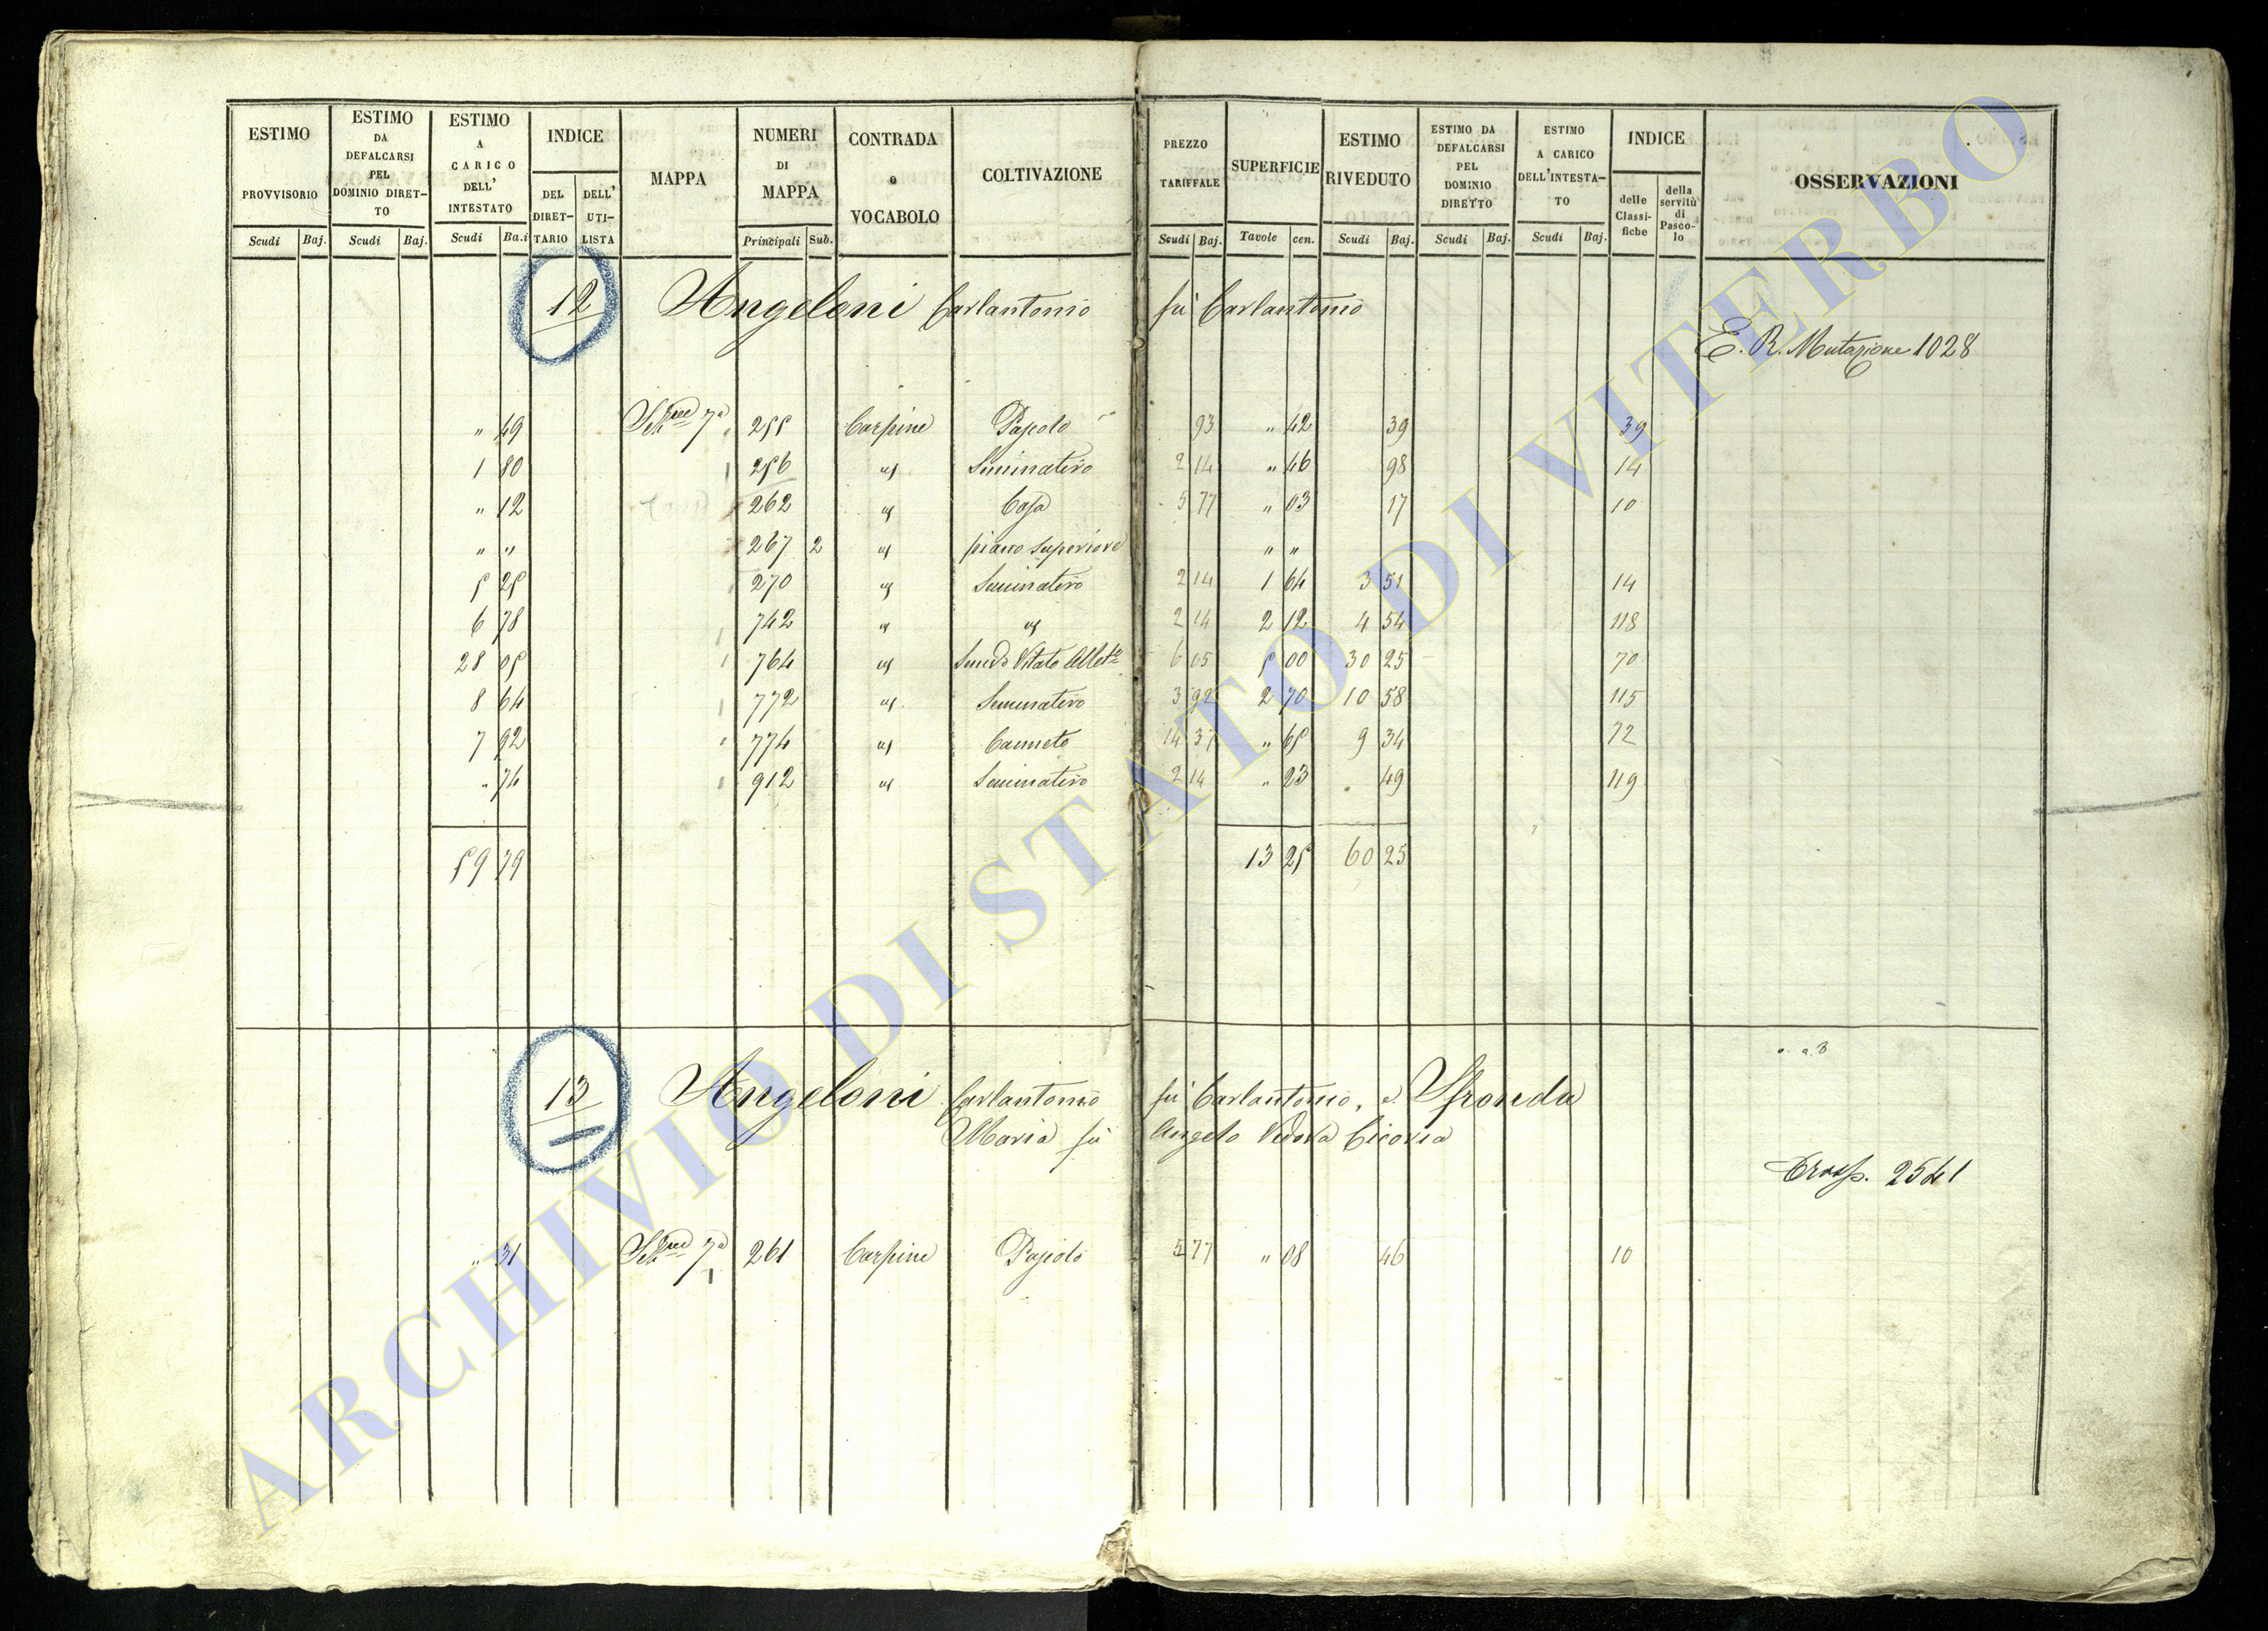 ESTIMO PROVVISORIO Scudi Baj.
ESTIMO DA DEFALCARSI PEL DOMINIO DIRETTO Scudi Baj.
ESTIMO A CARICO DELL' INTESTATO Scudi Ba.i
INDICE DEL DIRETTARIO DELL' UTILISTA
MAPPA
NUMERI DI MAPPA Principali Sub.
CONTRADA o VOCABOLO
COLTIVAZIONE
PREZZO TARIFFALE Scudi Baj.
SUPERFICIE Tavole cen.
ESTIMO RIVEDUTO Scudi Baj.
ESTIMO DA DEFALCARSI PEL DOMINIO DIRETTO Scudi Baj.
ESTIMO A CARICO DELL'INTESTATO Scudi Baj.
INDICE delle Classifiche della servitù di Pascolo
OSSERVAZIONI
12 Angeloni Carlantonio fù Carlantonio
E. R. Mutazione 1028
" 49 Sezne 7a 255 Carpine Pascolo 93 " 42 39 39
1 80 256 id Seminativo 2 14 " 46 98 14
" 12 262 id Casa 5 77 " 03 17 10
" " 267 2 id piano superiore " "
5 25 270 id Seminativo 2 14 1 64 3 51 14
6 78 742 id id 2 14 2 12 4 54 118
28 05 764 id Vitato 6 05 5 00 30 25 70
8 64 772 id Seminativo 3 92 2 70 10 58 115
7 92 774 id Canneto 14 37 " 65 9 34 72
" 74 912 id Seminativo 2 14 " 23 49 119
59 79 13 25 60 25
13 Angeloni Carlantonio fù Carlantonio, e Sfronda
Maria fù Angelo Vedova Cicoria
Trasp. 2541
" 31 Sezne 7a 261 Carpine Pascolo 5 77 " 08 46 10
ARCHIVIO DI STATO DI VITERBO